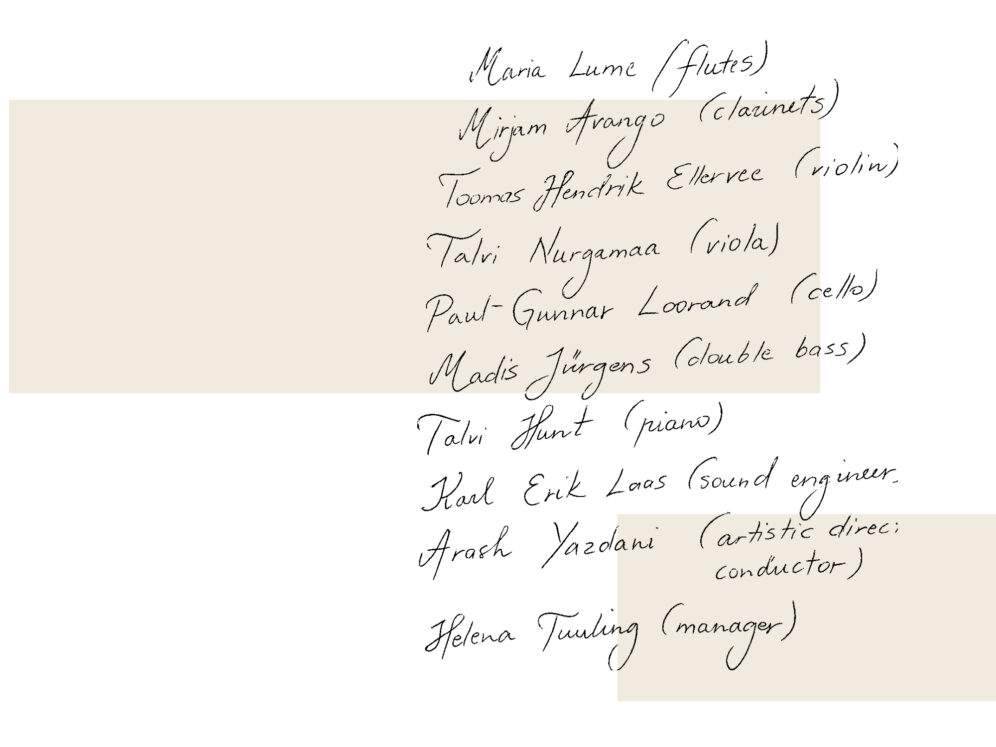 Maria Lume (flutes)
Mirjam Arango (clarinets)
Toomas Hendrik Ellervee (violin)
Talvi Nurgamaa (viola)
Paul-Gunnar Loorand (cello)
Madis Jürgens (double bass)
Talvi Hunt (piano)
Karl Erik Laas (sound engineer.
Arash Yazdani (artistic direc:
conductor)
Helena Tuuling (manager)